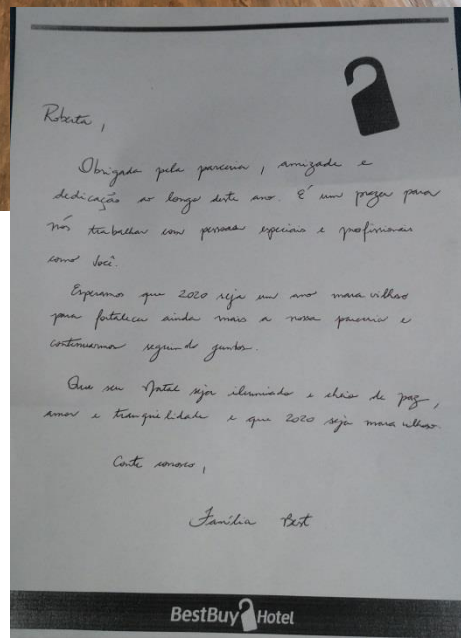 Roberta,
Obrigada pela parceria, amizade e
dedicação ao longo deste ano. É um prazer para
nós trabalhar com pessoas especiais e profissionais
como você.
Esperamos que 2020 seja um ano maravilhoso
para fortalecer ainda mais a nossa parceria e
continuarmos seguindo juntos.
Que seu Natal seja iluminado e cheio de paz,
amor e tranquilidade e que 2020 seja maravilhoso.
Conte conosco,
Família Best
BestBuy Hotel